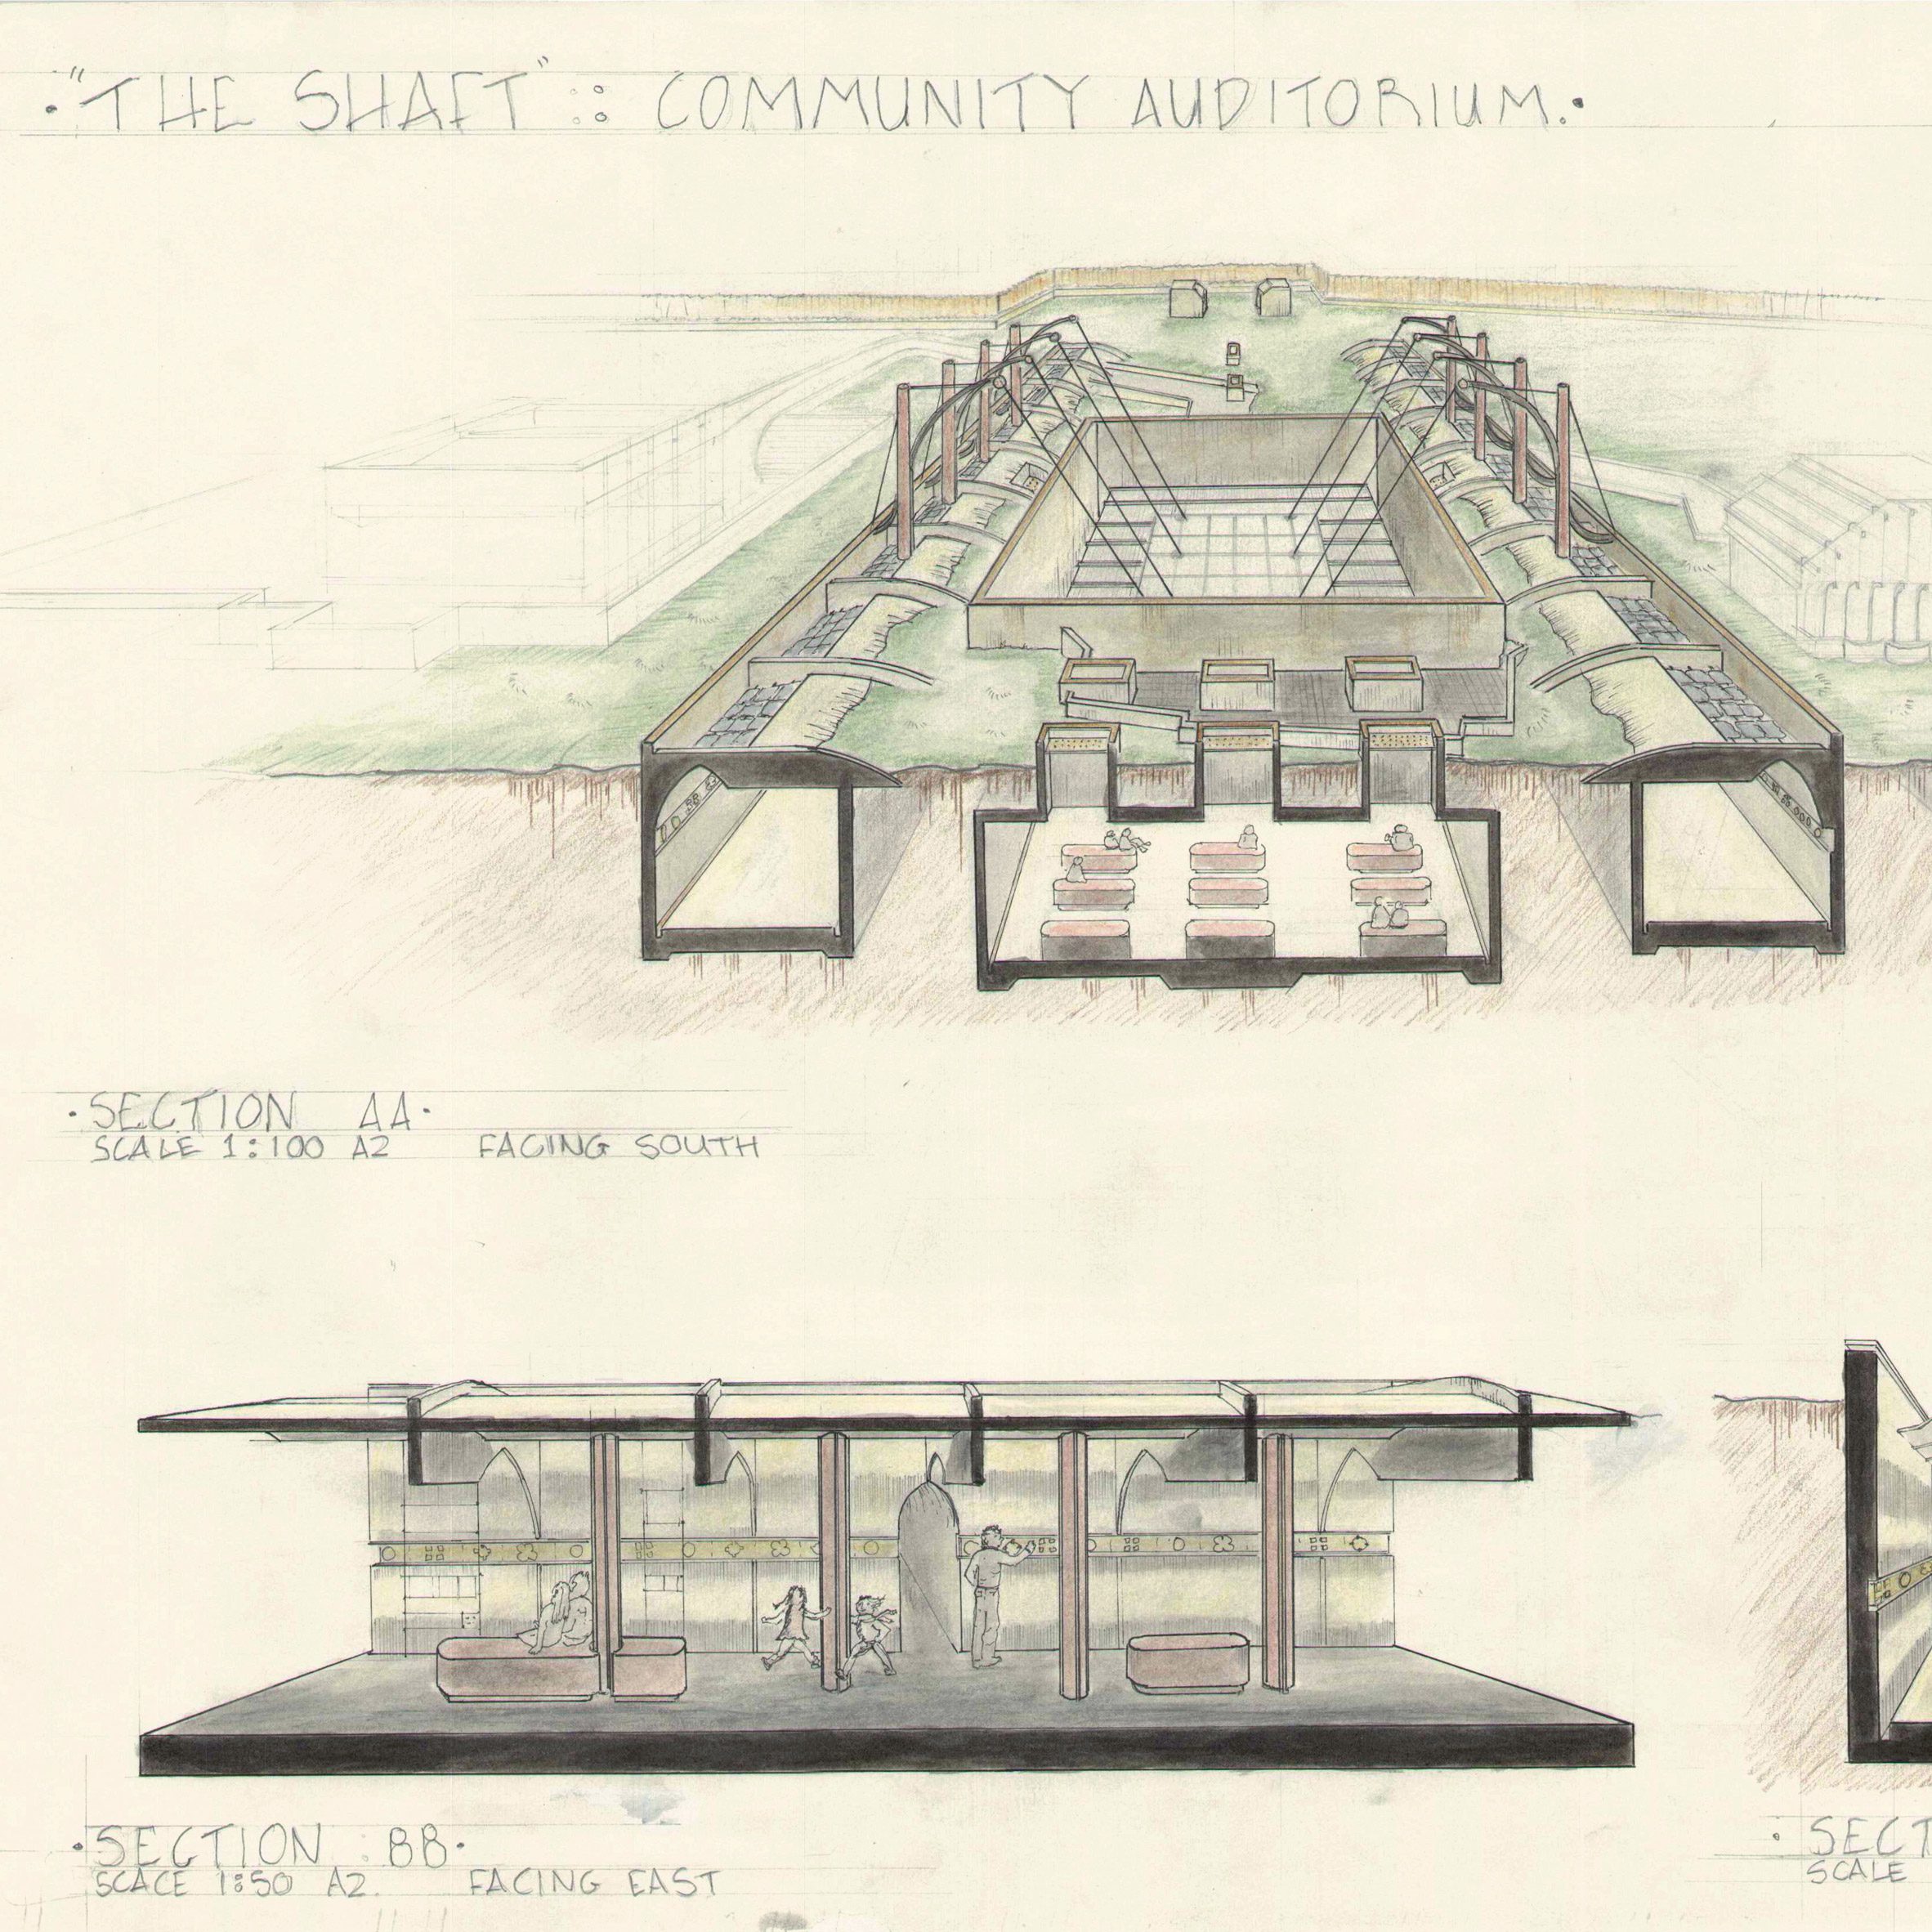 ·"THE SHAFT" :: COMMUNITY AUDITORIUM.·
·SECTION AA·
SCALE 1:100 A2 FACING SOUTH
·SECTION :BB·
SCALE 1:50 A2. FACING EAST
· SECT
SCALE